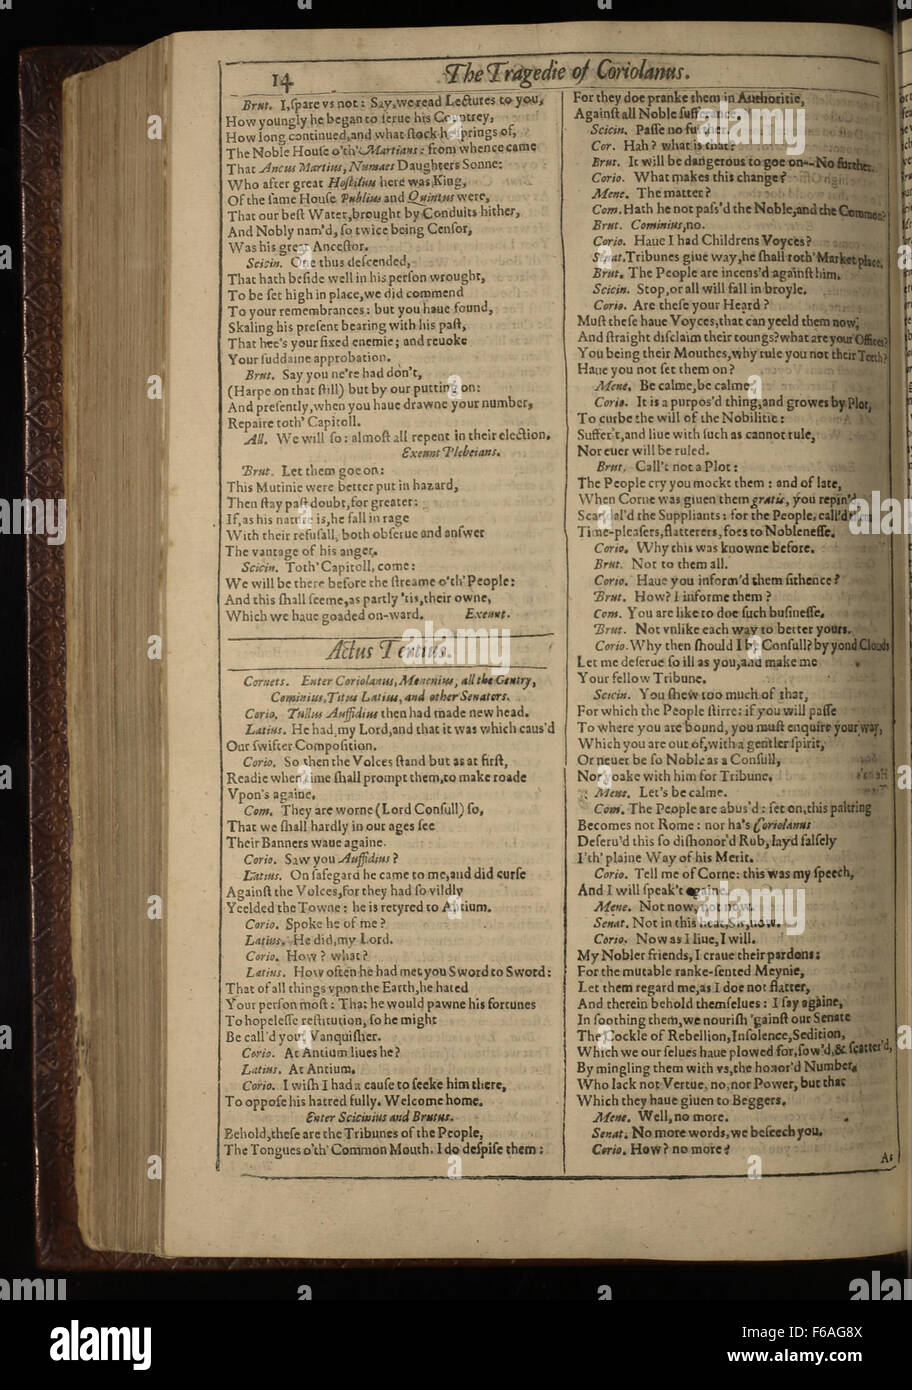 14
The Tragedie of Coriolanus.
Brut. I, ſpare vs not: Say, we read Lectures to you,
How youngly he began to ſerue his Countrey,
How long continued, and what ſtock he ſprings of,
The Noble Houſe o'th' Martians: from whence came
That Ancus Martius, Numaes Daughters Sonne:
Who after great Hoſtilius here was King,
Of the ſame Houſe Publius and Quintus were,
That our beſt Water, brought by Conduits hither,
And Nobly nam'd, ſo twice being Cenſor,
Was his great Anceſtor.
Scicin. One thus deſcended,
That hath beſide well in his perſon wrought,
To be ſet high in place, we did commend
To your remembrances: but you haue found,
Skaling his preſent bearing with his paſt,
That hee's your fixed enemie; and reuoke
Your ſuddaine approbation.
Brut. Say you ne're had don't,
(Harpe on that ſtill) but by our putting on:
And preſently, when you haue drawne your number,
Repaire toth' Capitoll.
All. We will ſo: almoſt all repent in their election.
Exeunt Plebeians.
Brut. Let them goe on:
This Mutinie were better put in hazard,
Then ſtay paſt doubt, for greater:
If, as his nature is, he fall in rage
With their refuſall, both obſerue and anſwer
The vantage of his anger.
Scicin. Toth' Capitoll, come:
We will be there before the ſtreame o'th' People:
And this ſhall ſeeme, as partly 'tis, their owne,
Which we haue goaded on-ward. Exeunt.
Actus Tertius.
Cornets. Enter Coriolanus, Menenius, all the Gentry,
Cominius, Titus Latius, and other Senators.
Corio. Tullus Auffidius then had made new head.
Latius. He had, my Lord, and that it was which caus'd
Our ſwifter Compoſition.
Corio. So then the Volces ſtand but as at firſt,
Readie when time ſhall prompt them, to make roade
Vpon's againe.
Com. They are worne (Lord Conſull) ſo,
That we ſhall hardly in our ages ſee
Their Banners waue againe.
Corio. Saw you Auffidius?
Latius. On ſafegard he came to me, and did curſe
Againſt the Volces, for they had ſo vildly
Yeelded the Towne: he is retyred to Antium.
Corio. Spoke he of me?
Latius. He did, my Lord.
Corio. How? what?
Latius. How often he had met you Sword to Sword:
That of all things vpon the Earth, he hated
Your perſon moſt: That he would pawne his fortunes
To hopeleſſe reſtitution, ſo he might
Be call'd your Vanquiſher.
Corio. At Antium liues he?
Latius. At Antium.
Corio. I wiſh I had a cauſe to ſeeke him there,
To oppoſe his hatred fully. Welcome home.
Enter Scicinius and Brutus.
Behold, theſe are the Tribunes of the People,
The Tongues o'th' Common Mouth. I do deſpiſe them:
For they doe pranke them in Authoritie,
Againſt all Noble ſufferance.
Scicin. Paſſe no further.
Cor. Hah? what is that?
Brut. It will be dangerous to goe on--No further.
Corio. What makes this change?
Mene. The matter?
Com. Hath he not paſs'd the Noble, and the Common?
Brut. Cominius, no.
Corio. Haue I had Childrens Voyces?
Senat. Tribunes giue way, he ſhall toth' Market place.
Brut. The People are incens'd againſt him.
Scicin. Stop, or all will fall in broyle.
Corio. Are theſe your Heard?
Muſt theſe haue Voyces, that can yeeld them now,
And ſtraight diſclaim their toungs? what are your Offices?
You being their Mouthes, why rule you not their Teeth?
Haue you not ſet them on?
Mene. Be calme, be calme.
Corio. It is a purpos'd thing, and growes by Plot,
To curbe the will of the Nobilitie:
Suffer't, and liue with ſuch as cannot rule,
Nor euer will be ruled.
Brut. Call't not a Plot:
The People cry you mockt them: and of late,
When Corne was giuen them gratis, you repin'd,
Scandal'd the Suppliants: for the People, call'd them
Time-pleaſers, flatterers, foes to Nobleneſſe.
Corio. Why this was knowne before.
Brut. Not to them all.
Corio. Haue you inform'd them ſithence?
Brut. How? I informe them?
Com. You are like to doe ſuch buſineſſe.
Brut. Not vnlike each way to better yours.
Corio. Why then ſhould I be Conſull? by yond Clouds
Let me deſerue ſo ill as you, and make me
Your fellow Tribune.
Scicin. You ſhew too much of that,
For which the People ſtirre: if you will paſſe
To where you are bound, you muſt enquire your way,
Which you are out of, with a gentler ſpirit,
Or neuer be ſo Noble as a Conſull,
Nor yoake with him for Tribune.
Mene. Let's be calme.
Com. The People are abus'd: ſet on, this paltring
Becomes not Rome: nor ha's Coriolanus
Deſeru'd this ſo diſhonor'd Rub, layd falſely
I'th' plaine Way of his Merit.
Corio. Tell me of Corne: this was my ſpeech,
And I will ſpeak't againe.
Mene. Not now, not now.
Senat. Not in this heat, Sir, now.
Corio. Now as I liue, I will.
My Nobler friends, I craue their pardons:
For the mutable ranke-ſented Meynie,
Let them regard me, as I doe not flatter,
And therein behold themſelues: I ſay againe,
In ſoothing them, we nouriſh 'gainſt our Senate
The Cockle of Rebellion, Inſolence, Sedition,
Which we our ſelues haue plowed for, ſow'd, & ſcatter'd,
By mingling them with vs, the honor'd Number,
Who lack not Vertue, no, nor Power, but that
Which they haue giuen to Beggers.
Mene. Well, no more.
Senat. No more words, we beſeech you.
Corio. How? no more?
As
alamy
Image ID: F6AG8X
www.alamy.com